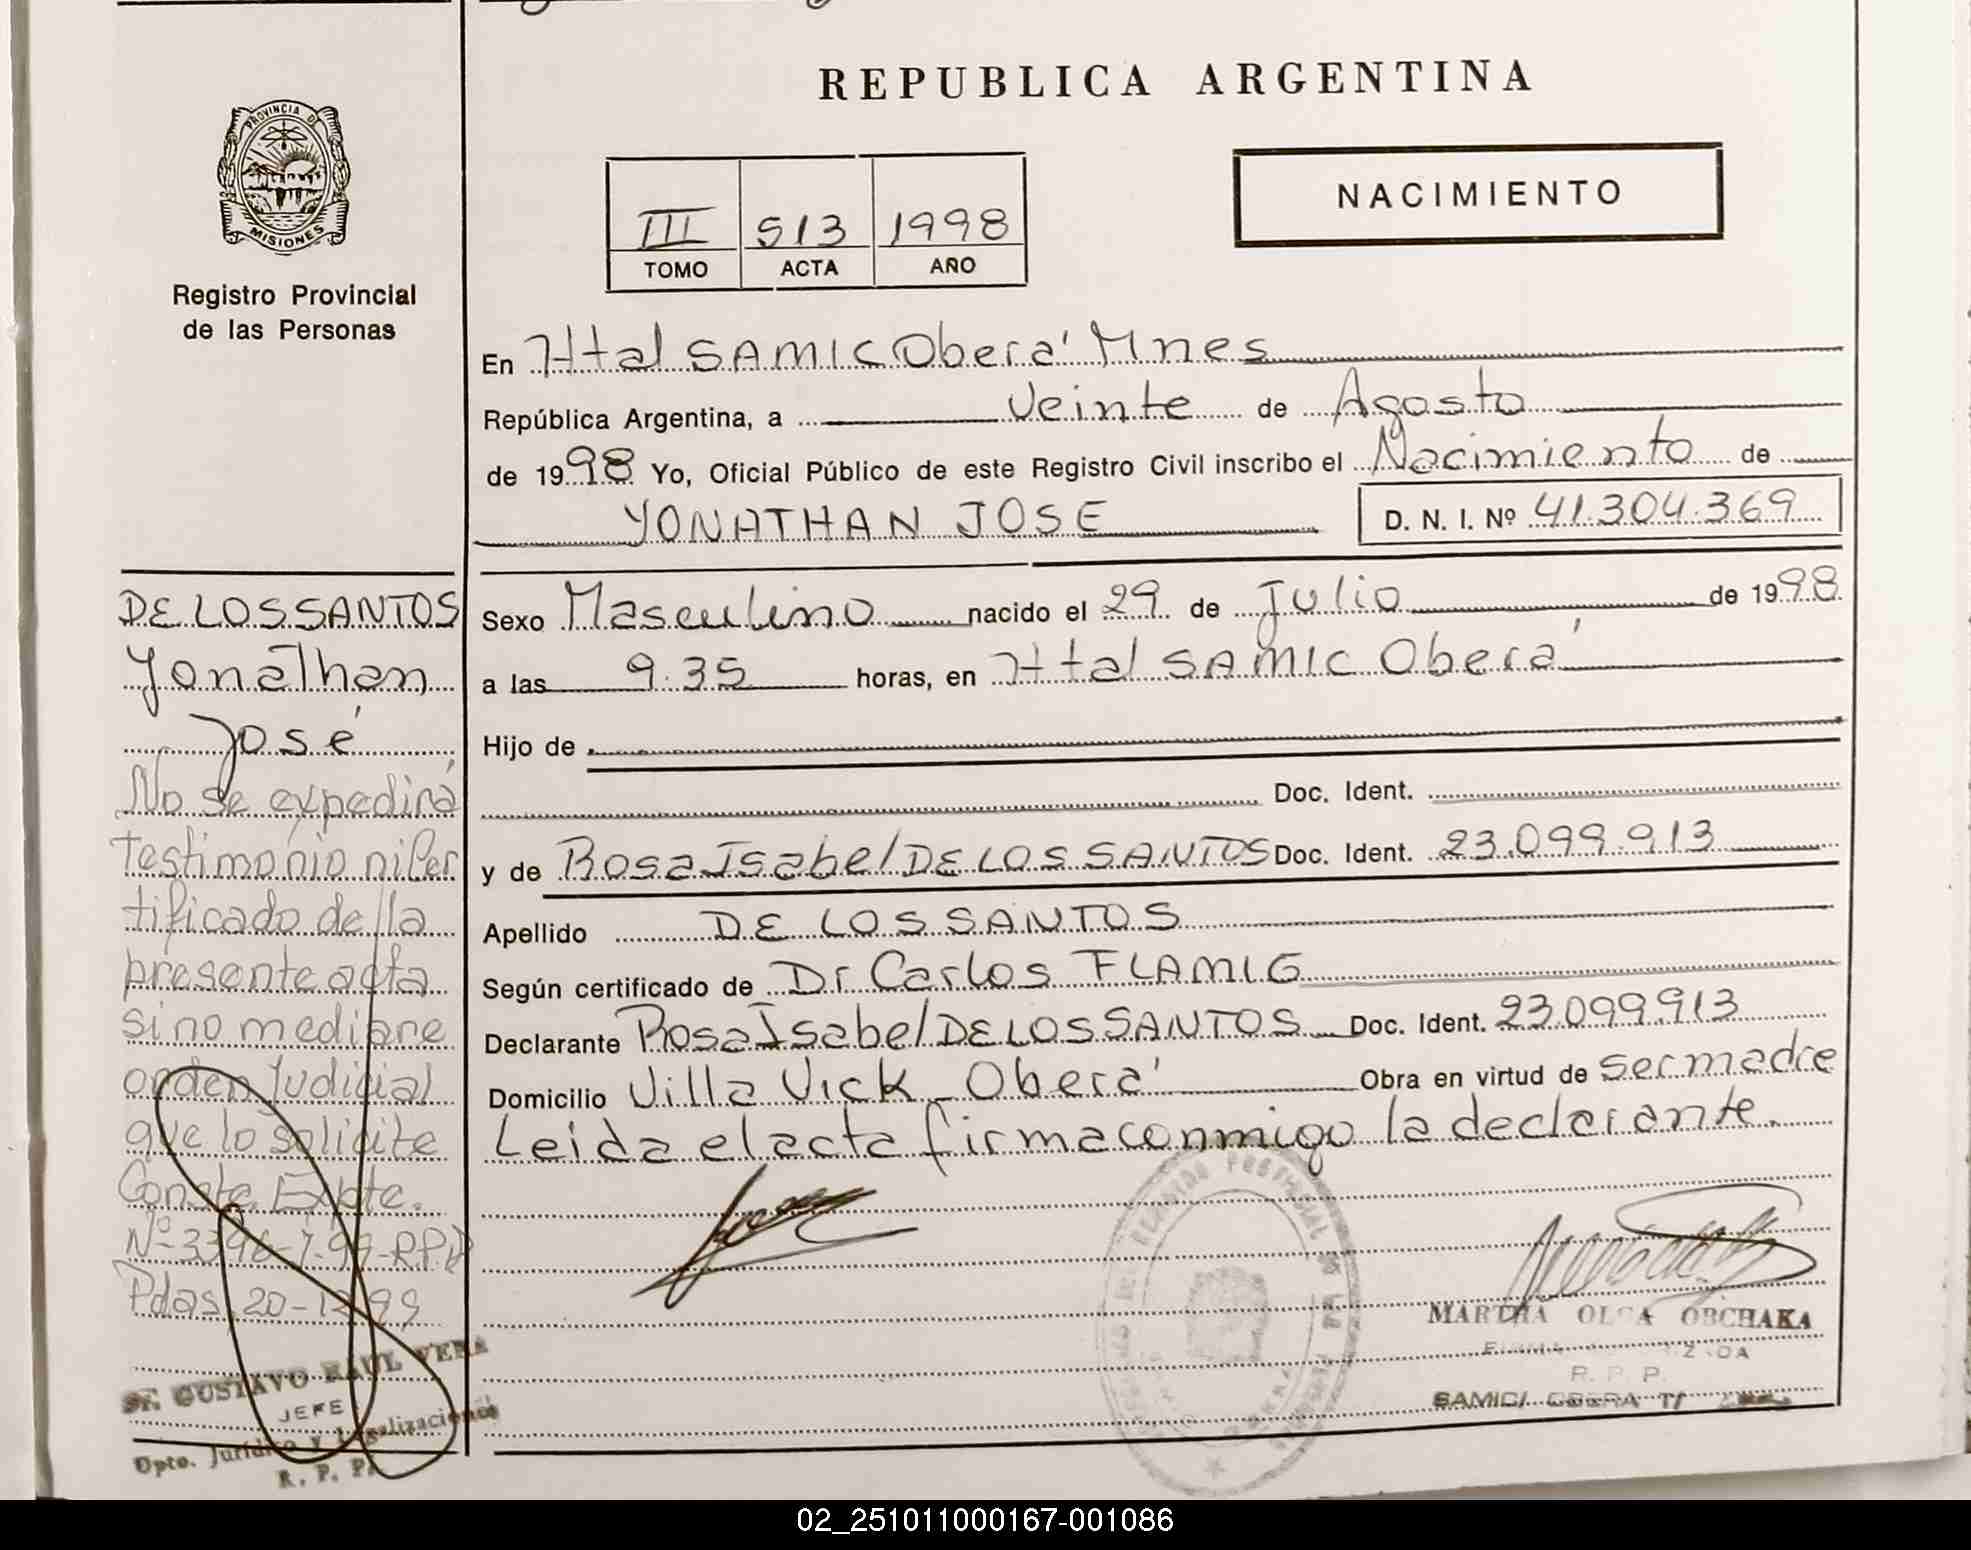 REPUBLICA ARGENTINA
PROVINCIA DE
MISIONES
Registro Provincial
de las Personas
NACIMIENTO
III 513 1998
TOMO ACTA AÑO
En Httal SAMIC Oberá Mnes
República Argentina, a veinte de Agosto
de 1998 Yo, Oficial Público de este Registro Civil inscribo el Nacimiento de
YONATHAN JOSE D. N. I. Nº 41.304.369
Sexo Masculino nacido el 29 de Julio de 1998
a las 9.35 horas, en Httal SAMIC Oberá
Hijo de
Doc. Ident.
y de Rosa Isabel DE LOS SANTOS Doc. Ident. 23.099.913
Apellido DE LOS SANTOS
Según certificado de Dr Carlos FLAMIG
Declarante Rosa Isabel DE LOS SANTOS Doc. Ident. 23.099.913
Domicilio Villa Vick Oberá Obra en virtud de ser madre
Leida el acta firma conmigo la declarante.
MARTHA OLGA OBCHAKA
R. P. P.
SAMIC/ OBERA
DE LOS SANTOS
Yonathan
José
No se expedirá
testimonio ni Cer
tificado de la
presente acta
sino mediare
orden Judicial
que lo solicite
Conste Expte.
Nº 3396-7-99-R.P.P
Pdas, 20-12-99
Dr. GUSTAVO RAUL VERA
JEFE
Dpto. Jurídico y Legalizaciones
R. P. P.
02_251011000167-001086